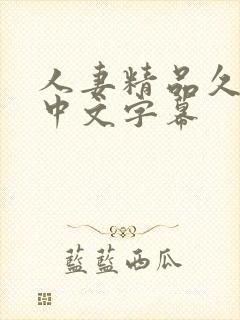 人妻精品久
中文字幕
藍藍西瓜